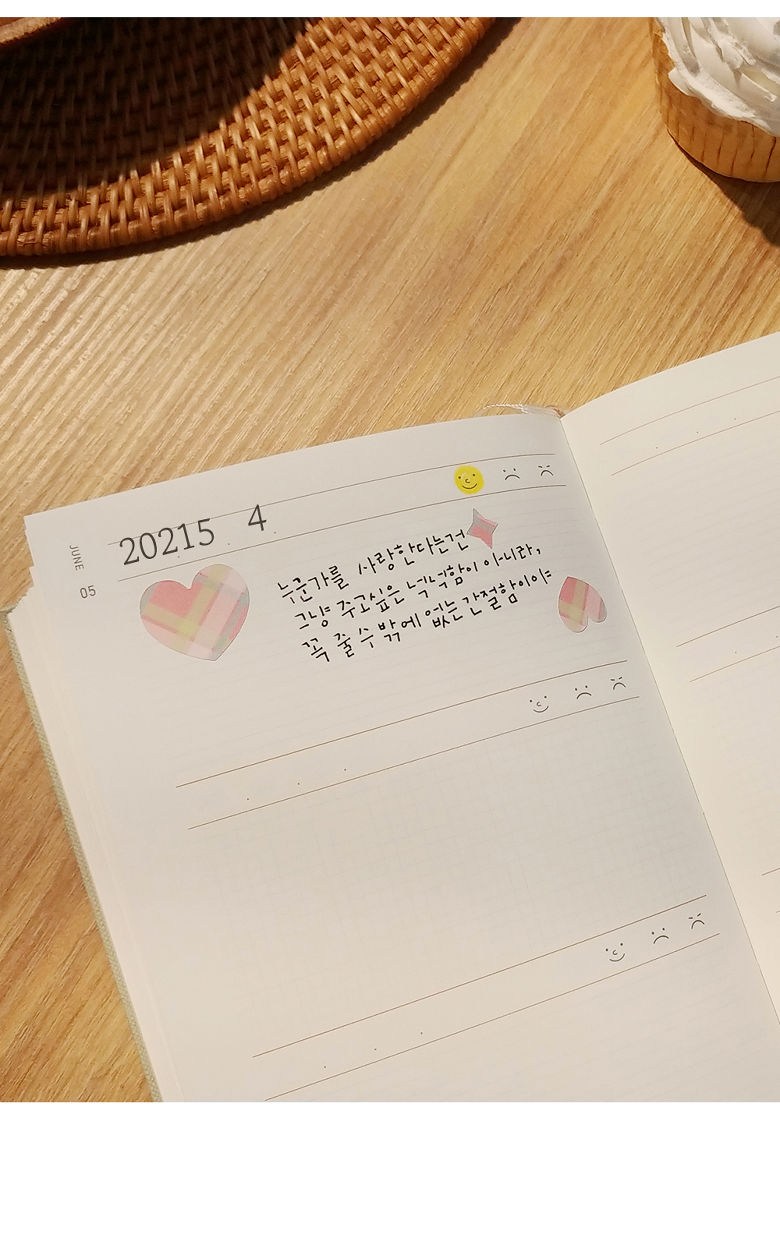 JUNE
05
20215 4
누군가를 사랑한다는건
그냥 주고싶은 넉넉함이 아니라,
꼭 줄 수 밖에 없는 간절함이야